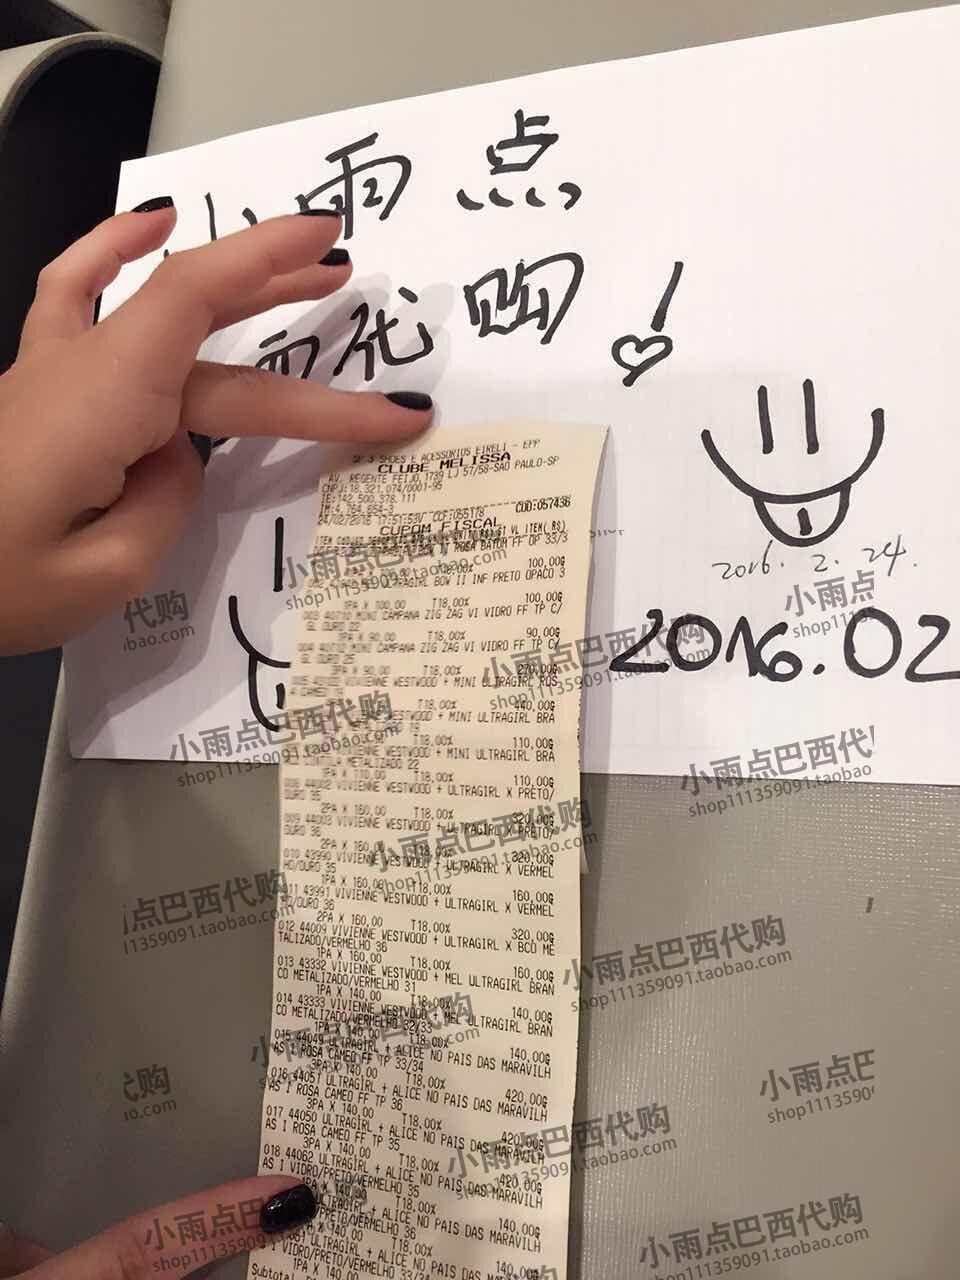 小雨点
西代购!
2016. 2. 24.
2016.02
SHOES E ACESSORIOS EIRELI - EPP
CLUBE MELISSA
AV. REGENTE FEIJO,1739 LJ 57/58-SAO PAULO-SP
CNPJ:18.321.074/0001-95
IE:142.500.378.111
IM:4.764.854-3
24/02/2016 17:51:53V CCF:055178 COO:057436
CUPOM FISCAL
ROSA BATOM FF OP 33/3
T18,00% 100,00G
ULTRAGIRL BOW II INF PRETO OPACO 3
1PA X 100,00 T18,00% 100,00G
003 40710 MINI CAMPANA ZIG ZAG VI VIDRO FF TP C/
GL OURO 22
1PA X 90,00 T18,00% 90,00G
004 40712 MINI CAMPANA ZIG ZAG VI VIDRO FF TP C/
GL OURO 25
3PA X 90,00 T18,00% 270,00G
VIVIENNE WESTWOOD + MINI ULTRAGIRL ROS
A CAMEO 19
440,00G
WESTWOOD + MINI ULTRAGIRL BRA
19
T18,00% 110,00G
VIVIENNE WESTWOOD + MINI ULTRAGIRL BRA
METALIZADO 22
1PA X 110,00 T18,00% 110,00G
008 44002 VIVIENNE WESTWOOD + ULTRAGIRL X PRETO/
OURO 35
2PA X 160,00 T18,00% 320,00G
009 44003 VIVIENNE WESTWOOD + ULTRAGIRL X PRETO/
OURO 36
2PA X 160,00 T18,00% 320,00G
010 43990 VIVIENNE WESTWOOD + ULTRAGIRL X VERMEL
HO/OURO 35
1PA X 160,00 T18,00% 160,00G
011 43991 VIVIENNE WESTWOOD + ULTRAGIRL X VERMEL
HO/OURO 36
2PA X 160,00 T18,00% 320,00G
012 44009 VIVIENNE WESTWOOD + ULTRAGIRL X BCO ME
TALIZADO/VERMELHO 36
1PA X 160,00 T18,00% 160,00G
013 43332 VIVIENNE WESTWOOD + MEL ULTRAGIRL BRAN
CO METALIZADO/VERMELHO 31
1PA X 140,00 T18,00% 140,00G
014 43333 VIVIENNE WESTWOOD + MEL ULTRAGIRL BRAN
CO METALIZADO/VERMELHO 32/33
1PA X 140,00 T18,00% 140,00G
015 44049 ULTRAGIRL + ALICE NO PAIS DAS MARAVILH
AS I ROSA CAMEO FF TP 33/34
3PA X 140,00 T18,00% 420,00G
016 44051 ULTRAGIRL + ALICE NO PAIS DAS MARAVILH
AS I ROSA CAMEO FF TP 36
3PA X 140,00 T18,00% 420,00G
017 44050 ULTRAGIRL + ALICE NO PAIS DAS MARAVILH
AS I ROSA CAMEO FF TP 35
3PA X 140,00 T18,00% 420,00G
018 44062 ULTRAGIRL + ALICE NO PAIS DAS MARAVILH
AS I VIDRO/PRETO/VERMELHO 35
1PA X 140,00 T18,00% 140,00G
ULTRAGIRL + ALICE NO PAIS DAS MARAVILH
/PRETO/VERMELHO 36
T18,00% 140,00G
ULTRAGIRL + ALICE NO PAIS DAS MARAVILH
I VIDRO/PRETO/VERMELHO 33/34
1PA X 140,00 T18,00% 140,00G
Subtotal
小雨点巴西代购
shop111359091.taobao.com